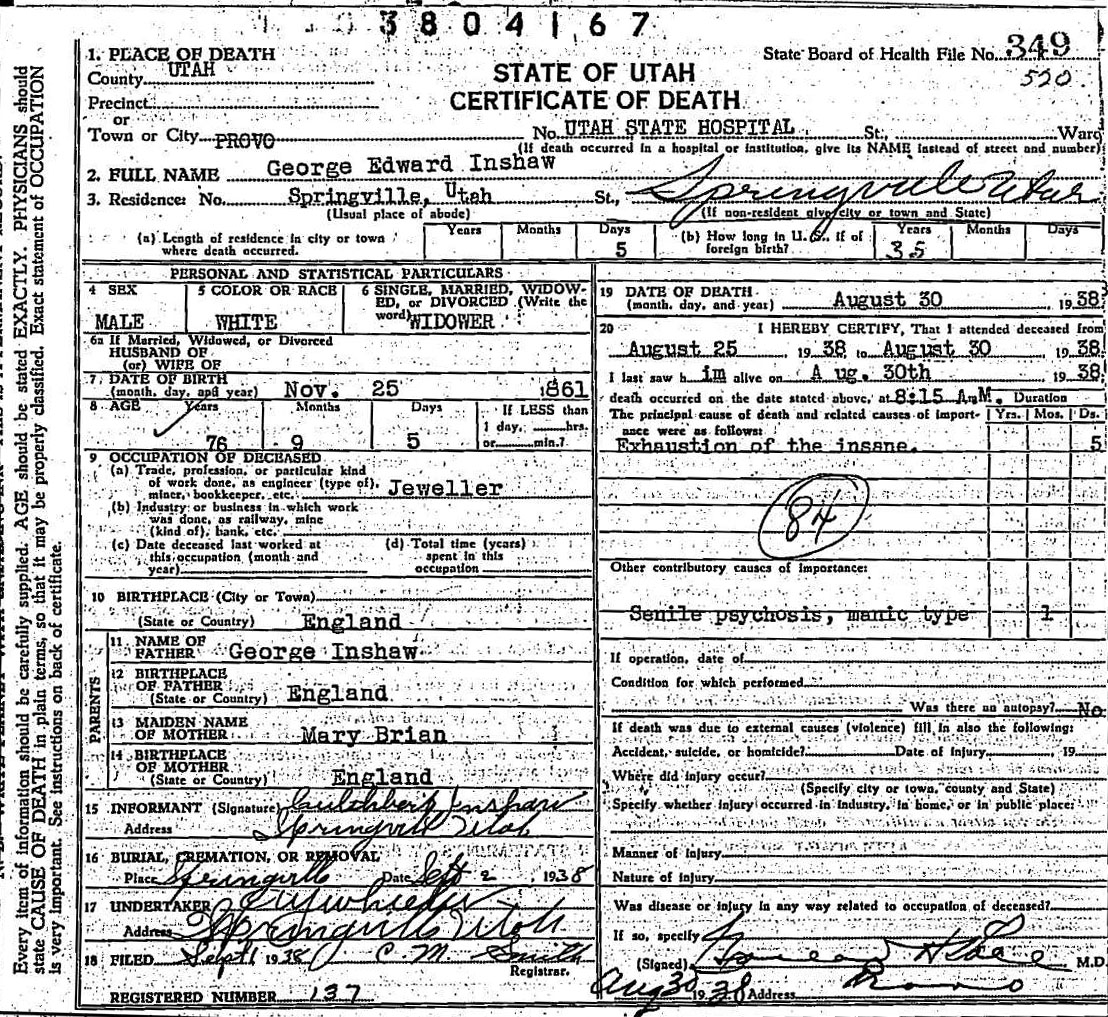 3804167
1. PLACE OF DEATH
County UTAH
Precinct
or
Town or City PROVO
STATE OF UTAH
CERTIFICATE OF DEATH
State Board of Health File No. 349
520
No. UTAH STATE HOSPITAL St., Ward
(If death occurred in a hospital or institution, give its NAME instead of street and number)
2. FULL NAME George Edward Inshaw
3. Residence: No. Springville, Utah St., Springville Utah
(Usual place of abode) (If non-resident give city or town and State)
(a) Length of residence in city or town where death occurred. Years Months Days 5
(b) How long in U. S., if of foreign birth? Years 35 Months Days
PERSONAL AND STATISTICAL PARTICULARS
4 SEX MALE
5 COLOR OR RACE WHITE
6 SINGLE, MARRIED, WIDOWED, or DIVORCED (Write the word) WIDOWER
6a If Married, Widowed, or Divorced
HUSBAND OF
(or) WIFE OF
7 DATE OF BIRTH
(month, day, and year) Nov. 25 1861
8 AGE Years 76 Months 9 Days 5 If LESS than
1 day, hrs.
or min.?
9 OCCUPATION OF DECEASED
(a) Trade, profession, or particular kind
of work done, as engineer (type of),
miner, bookkeeper, etc. Jeweller
(b) Industry or business in which work
was done, as railway, mine
(kind of), bank, etc.
(c) Date deceased last worked at
this occupation (month and
year)
(d) Total time (years)
spent in this
occupation
10 BIRTHPLACE (City or Town)
(State or Country) England
PARENTS
11 NAME OF
FATHER George Inshaw
12 BIRTHPLACE
OF FATHER
(State or Country) England
13 MAIDEN NAME
OF MOTHER Mary Brian
14 BIRTHPLACE
OF MOTHER
(State or Country) England
15 INFORMANT (Signature) Inshaw
Address Springvill Utah
16 BURIAL, CREMATION, OR REMOVAL
Place Springville Date Sept 2, 1938
17 UNDERTAKER
Address Springville Utah
18 FILED Sept 1 1938 C. M. Smith
Registrar.
REGISTERED NUMBER 137
19 DATE OF DEATH
(month, day, and year) August 30 1938
20 I HEREBY CERTIFY, That I attended deceased from
August 25, 1938 to August 30 1938
I last saw him alive on Aug. 30th 1938
death occurred on the date stated above, at 8:15 A.M. Duration
The principal cause of death and related causes of importance were as follows: Yrs. Mos. Ds.
Exhaustion of the insane. 5
84
Other contributory causes of importance:
Senile psychosis, manic type 1
If operation, date of
Condition for which performed
Was there an autopsy? No
If death was due to external causes (violence) fill in also the following:
Accident, suicide, or homicide? Date of injury, 19
Where did injury occur?
(Specify city or town, county and State)
Specify whether injury occurred in industry, in home, or in public place:
Manner of injury
Nature of injury
Was disease or injury in any way related to occupation of deceased?
If so, specify
(Signed) M.D.
Aug 30 1938 Address Provo
Every item of information should be carefully supplied. AGE should be stated EXACTLY. PHYSICIANS should
state CAUSE OF DEATH in plain terms, so that it may be properly classified. Exact statement of OCCUPATION
is very important. See instructions on back of certificate.